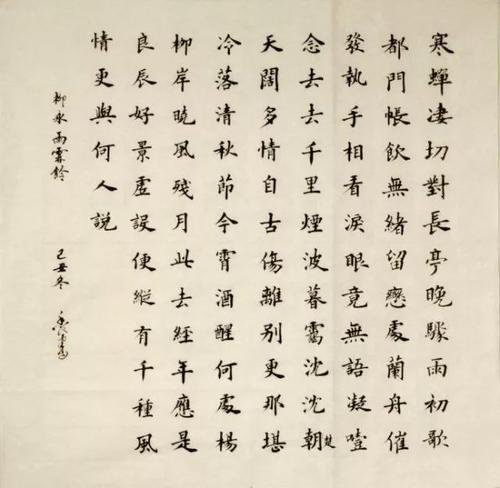 寒蟬凄切對長亭晚驟雨初歇
都門帳飲無緒留戀處蘭舟催
發執手相看淚眼竟無語凝噎
念去去千里煙波暮靄沈沈朝楚
天闊多情自古傷離別更那堪
冷落清秋節今宵酒醒何處楊
柳岸曉風殘月此去經年應是
良辰好景虛設便縱有千種風
情更與何人說
柳永雨霖鈴 己丑冬